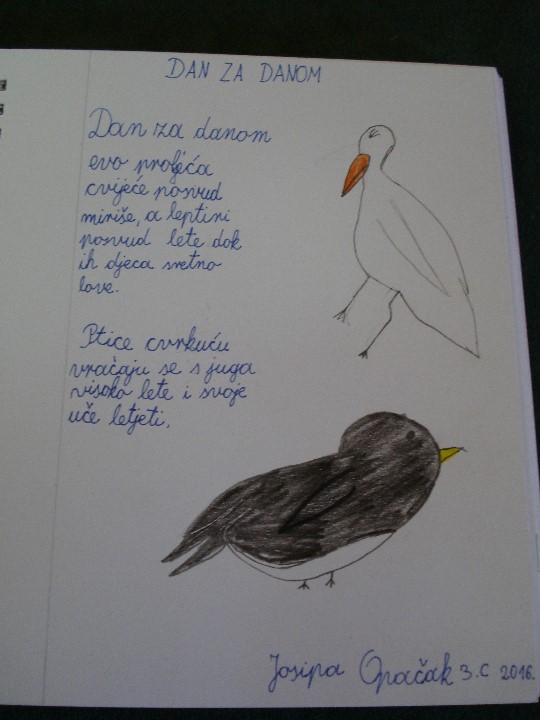 DAN ZA DANOM
Dan za danom
evo proljeća
cvijeće posvud
miriše, a leptiri
posvud lete dok
ih djeca sretno
love.
Ptice cvrkuću
vračaju se s juga
visoko lete i svoje
uče letjeti.
Josipa Opačak 3.c 2016.